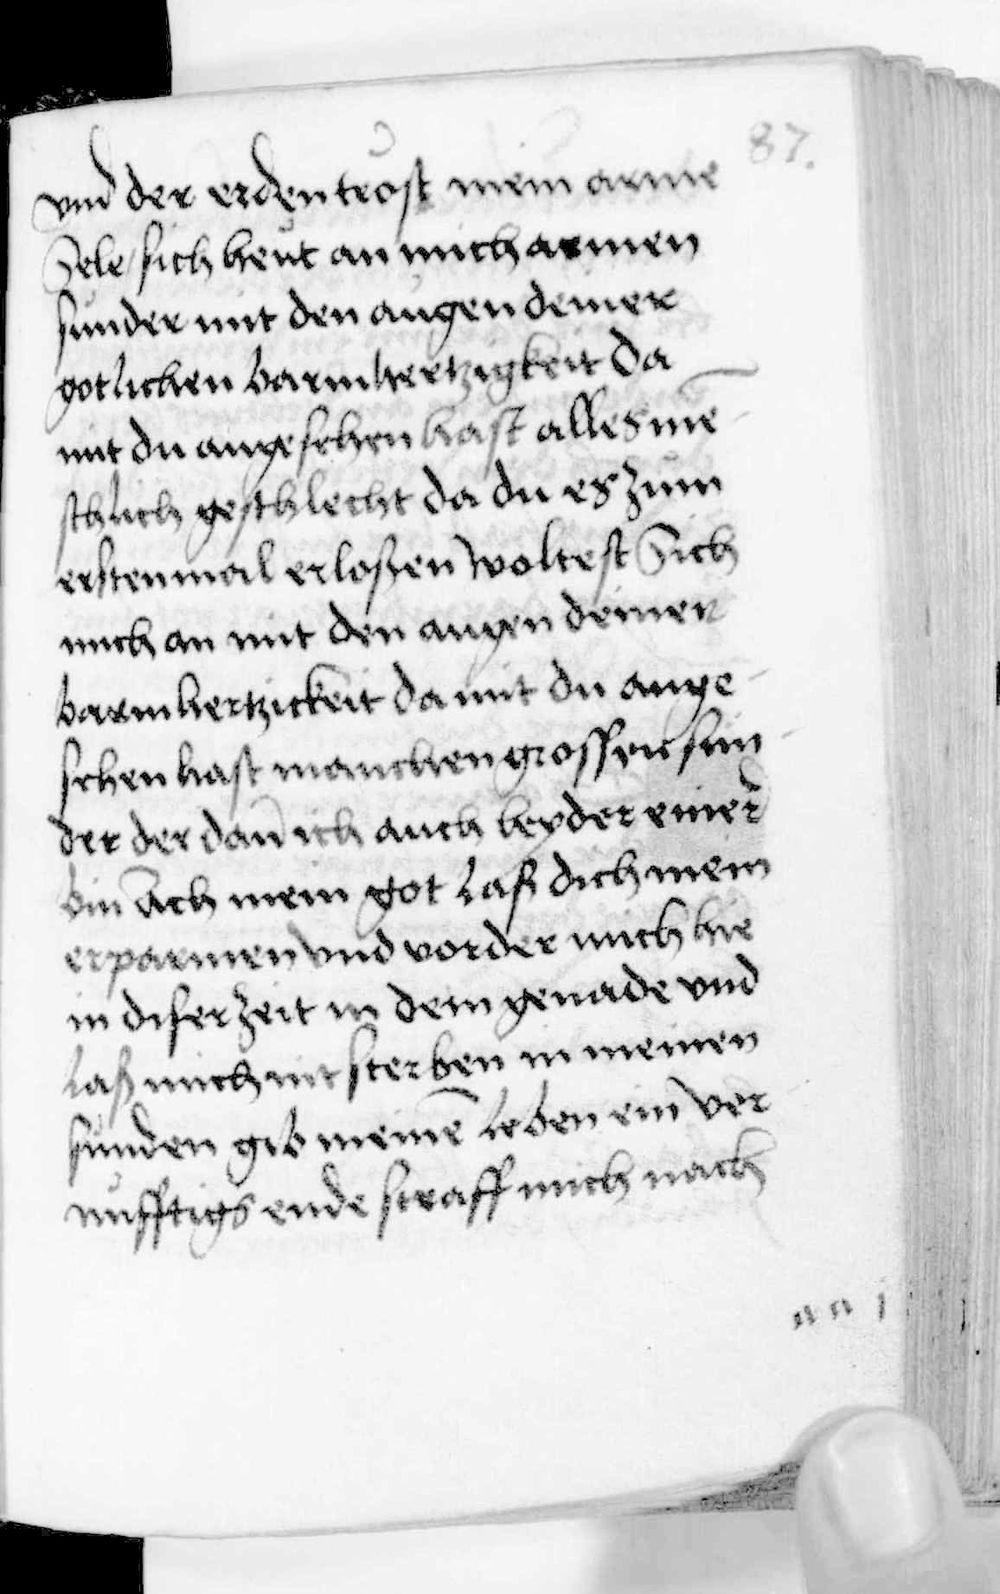 87.
vnd der erden trost mein arme
Sele / sich heut an mich armen
sunder mit den augen deiner
gotlichen barmhertzigkeit da
mit du angesehen hast alles me͂
schlich geschlecht da du es zum
erstenmal erloßen woltest Sich
mich an mit den augen deiner
barmhertzickeit da mit du ange
sehen hast manchen grossen sun
der der dan̄ ich auch leyder einer
bin Ach mein got laß dich mein
erparmen vnd vorder mich hie
in diser zeit in dein genade vnd
laß mich nit sterben in meinen
sunden gib meine͂ leben ein ver
nufftigs ende straff mich nach